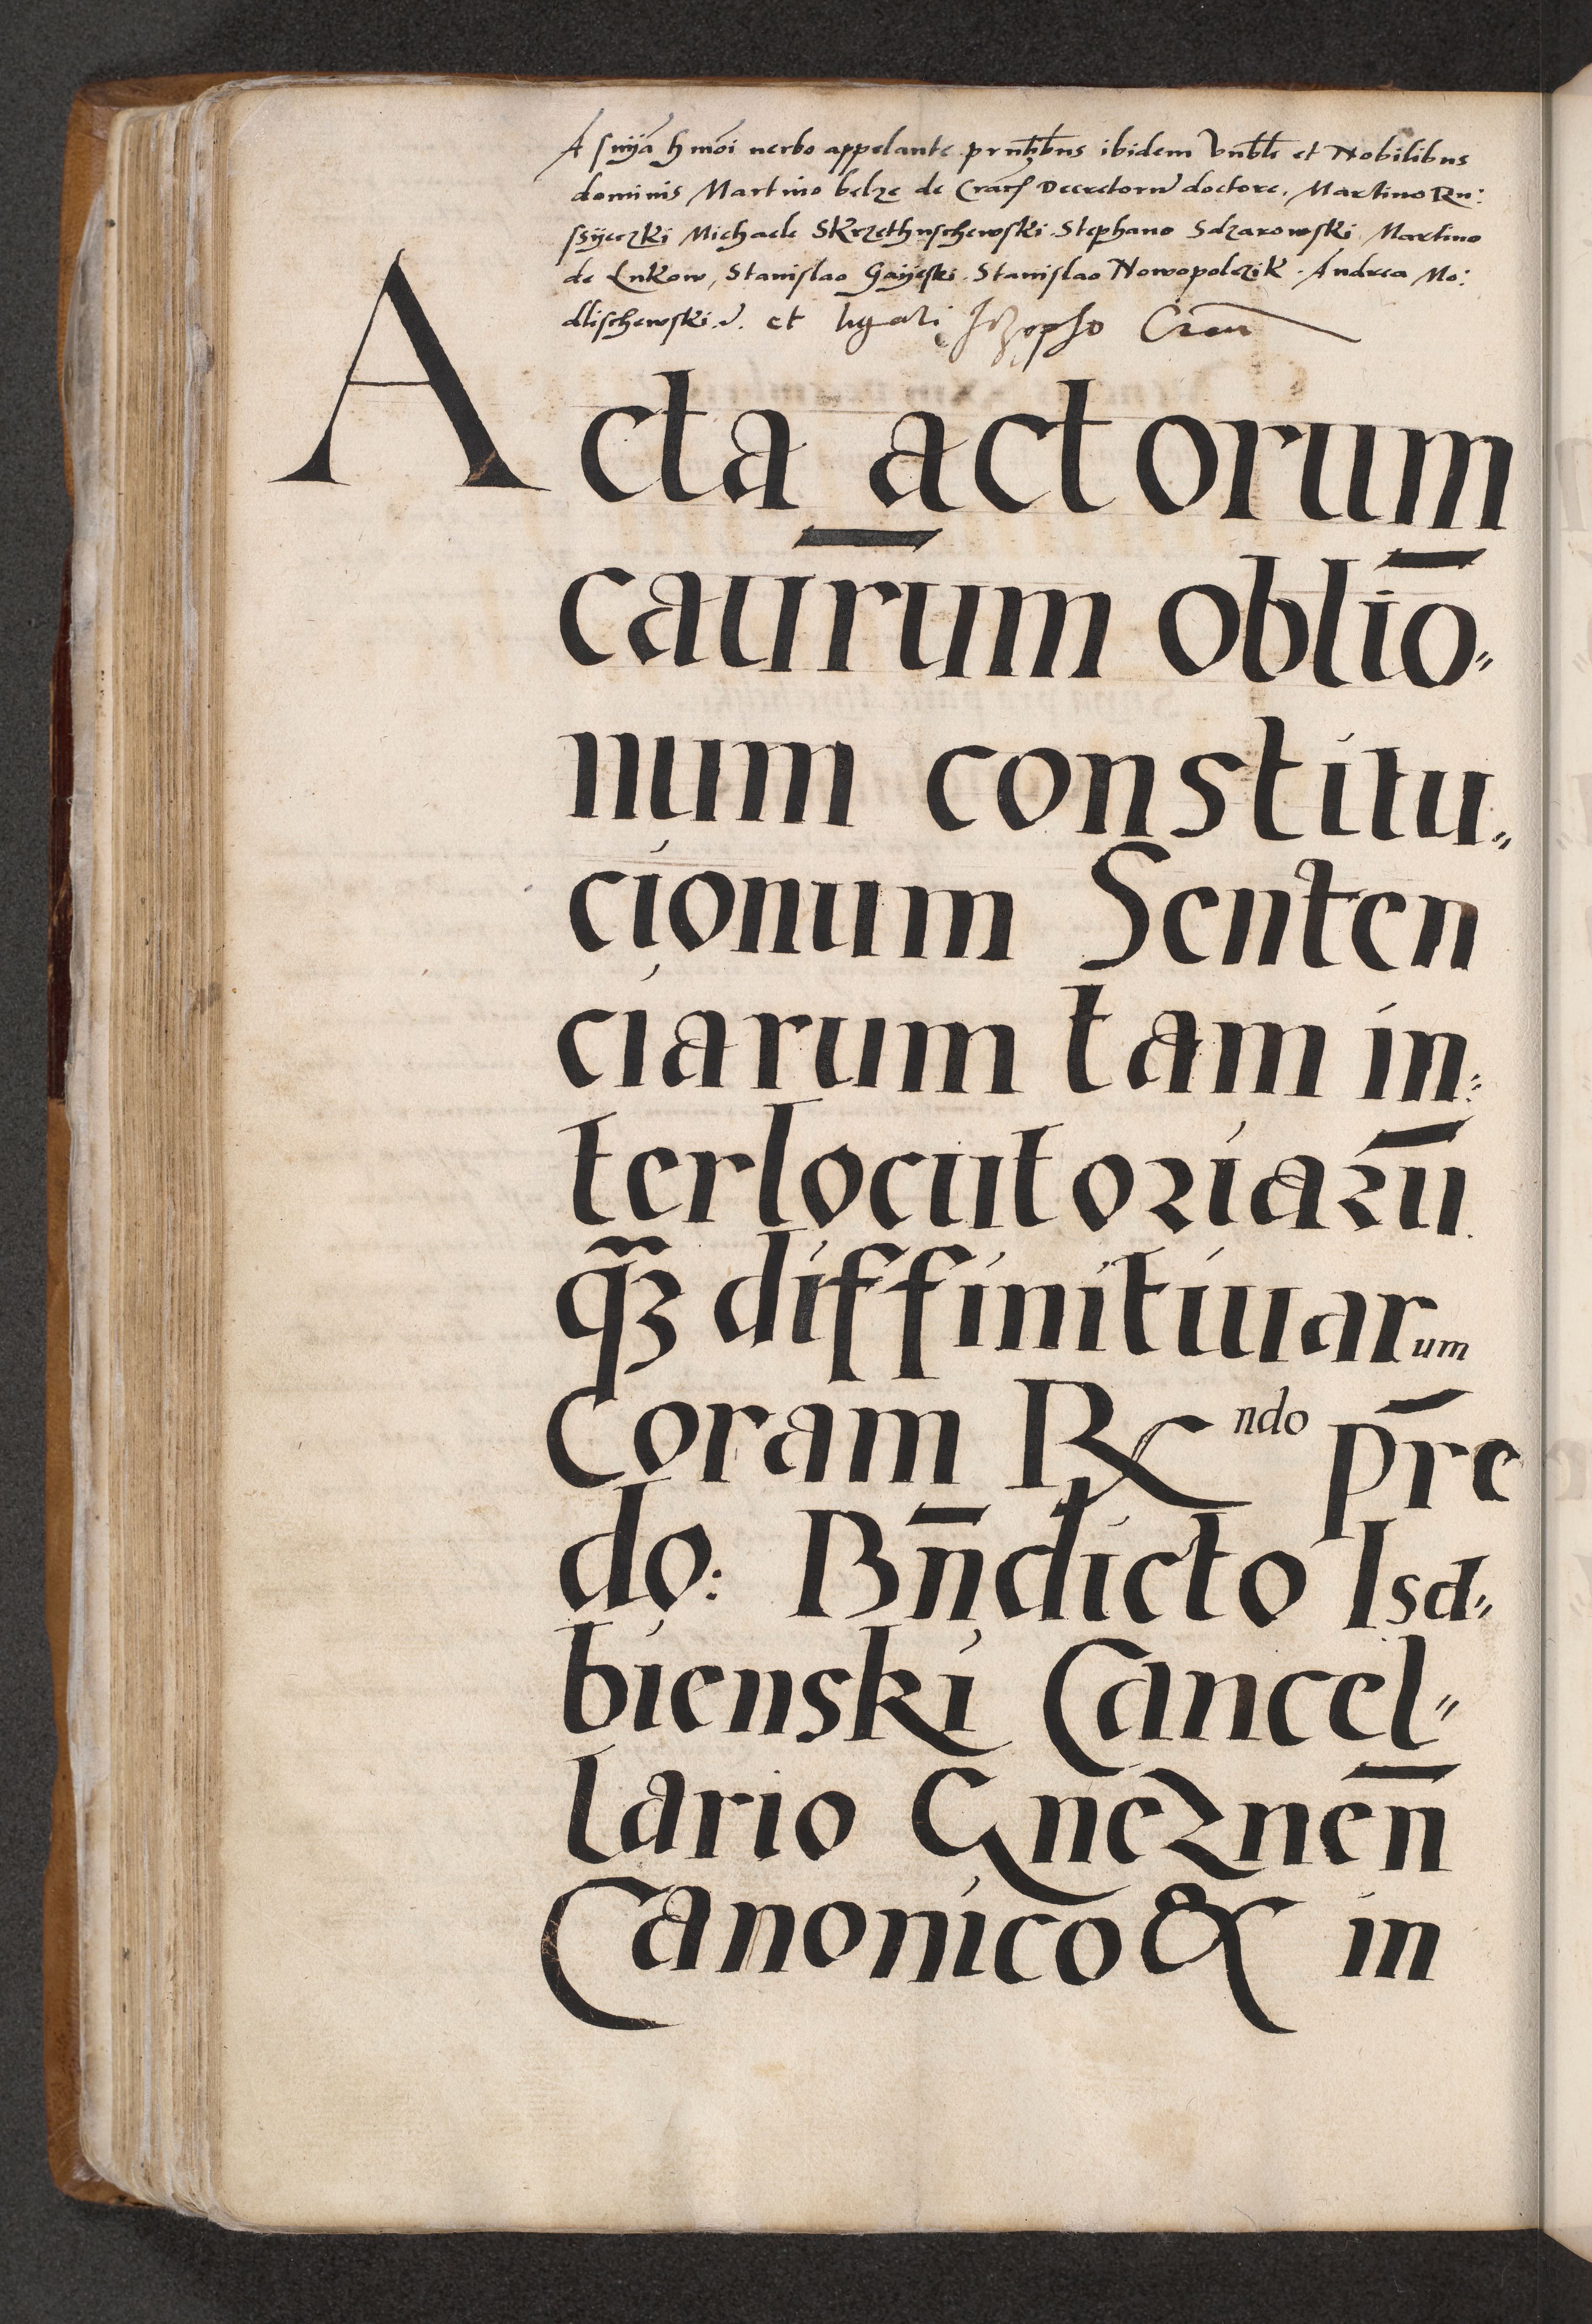 A snÿa hmõi verbo appelante prntibus ibidem Vnbli et Nobilibus
dominis Martino belze de Decretoru doctore, Martino Ru:
ssÿeczki Michaele Skrzethuschewski Stephano Sdzarowski Martino
de Lukow, Stanislao Gaÿeski Stanislao Nowopolczik Andrea Mo:
dlischewski et
Acta actorum
caur̄um obliō„
num constitu„
cionum Senten
ciarum tam in:
terlocutoriarū
q̃ꝫ diffinitiuarum
Coram R ndo pr̄e
do: Bn̄dicto Isd„
bienski Cancel„
lario Gneznen̄
Canonico & in